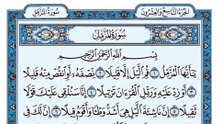 الجزء التاسع والعشرون
سورة المزمل
سورة المزمل
بسم الله الرحمن الرحيم
يَٰٓأَيُّهَا ٱلْمُزَّمِّلُ قُمِ ٱلَّيْلَ إِلَّا قَلِيلًا نِّصْفَهُۥٓ أَوِ ٱنقُصْ مِنْهُ قَلِيلًا
أَوْ زِدْ عَلَيْهِ وَرَتِّلِ ٱلْقُرْءَانَ تَرْتِيلًا إِنَّا سَنُلْقِى عَلَيْكَ قَوْلًا ثَقِيلًا
إِنَّ نَاشِئَةَ ٱلَّيْلِ هِىَ أَشَدُّ وَطْـًٔا وَأَقْوَمُ قِيلًا إِنَّ لَكَ فِى